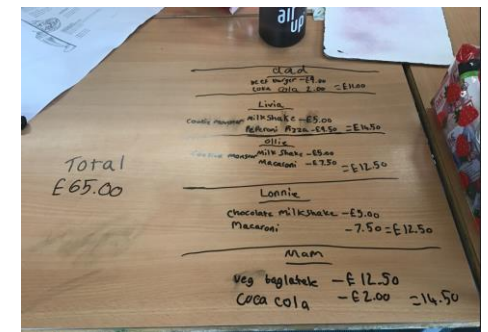 air
up
dad
Beef burger - £9.00
Coca cola 2.00 = £11.00
Livia
Cookie monster milkshake - £5.00
Peperoni Pizza - £9.50 = £14.50
Ollie
Cookie monster Milk Shake - £5.00
Macaroni - £7.50 = £12.50
Total
£65.00
Lonnie
chocolate milkshake - £5.00
Macaroni - 7.50 = £12.50
Mam
veg baglatek - £12.50
Coca cola - £2.00 = 14.50